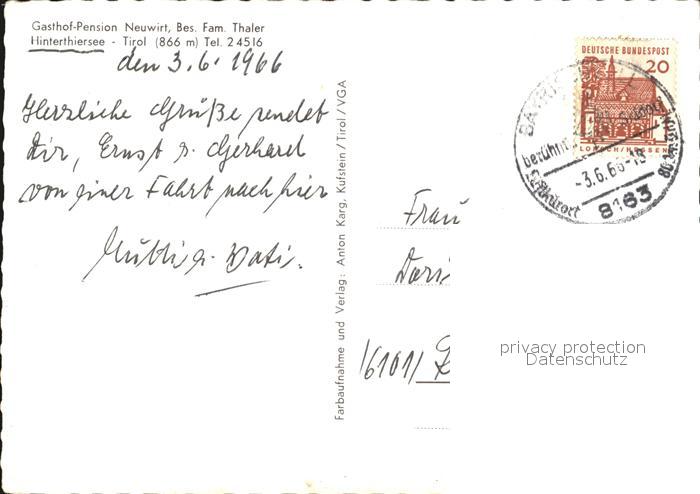 Gasthof-Pension Neuwirt, Bes. Fam. Thaler
Hinterthiersee - Tirol (866 m) Tel. 2 45 16
den 3.6.1966
Herzliche Grüße sendet
Dir, Ernst u. Gerhard
von einer Fahrt nach hier
Mutti u. Vati.
Farbaufnahme und Verlag: Anton Karg, Kufstein/Tirol/VGA
DEUTSCHE BUNDESPOST
20
LORSCH/HESSEN
berühmt
Luftkurort
-3.6.66-18
8163
Frau
Dori
6101/
privacy protection
Datenschutz